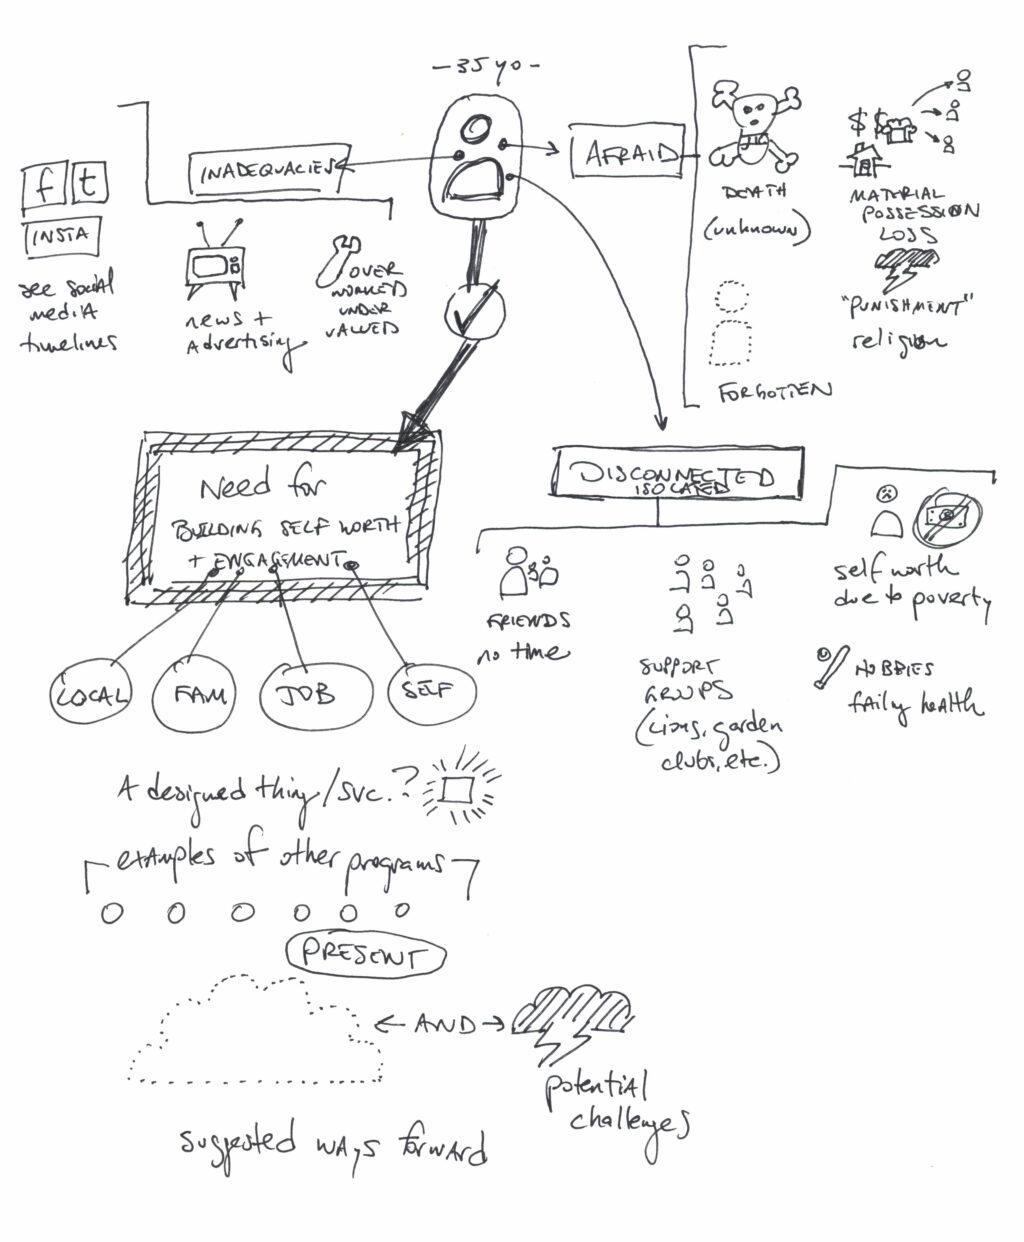 - 35 yo -
INADEQUACIES
f t
INSTA
see social
media
timelines
news +
Advertising
OVER
WORKED
UNDER
VALUED
AFRAID
DEATH
(unknown)
$ $
MATERIAL
POSSESSION
LOSS
"PUNISHMENT"
religion
FORGOTTEN
Need for
BUILDING SELF WORTH
+ ENGAGEMENT
LOCAL
FAM
JOB
SELF
DISCONNECTED
ISOLATED
FRIENDS
no time
SUPPORT
GROUPS
(Lions, garden
clubs, etc.)
self worth
due to poverty
HOBBIES
faily health
A designed thing/svc.?
examples of other programs
PRESENT
← AND →
potential
challenges
suggested ways forward